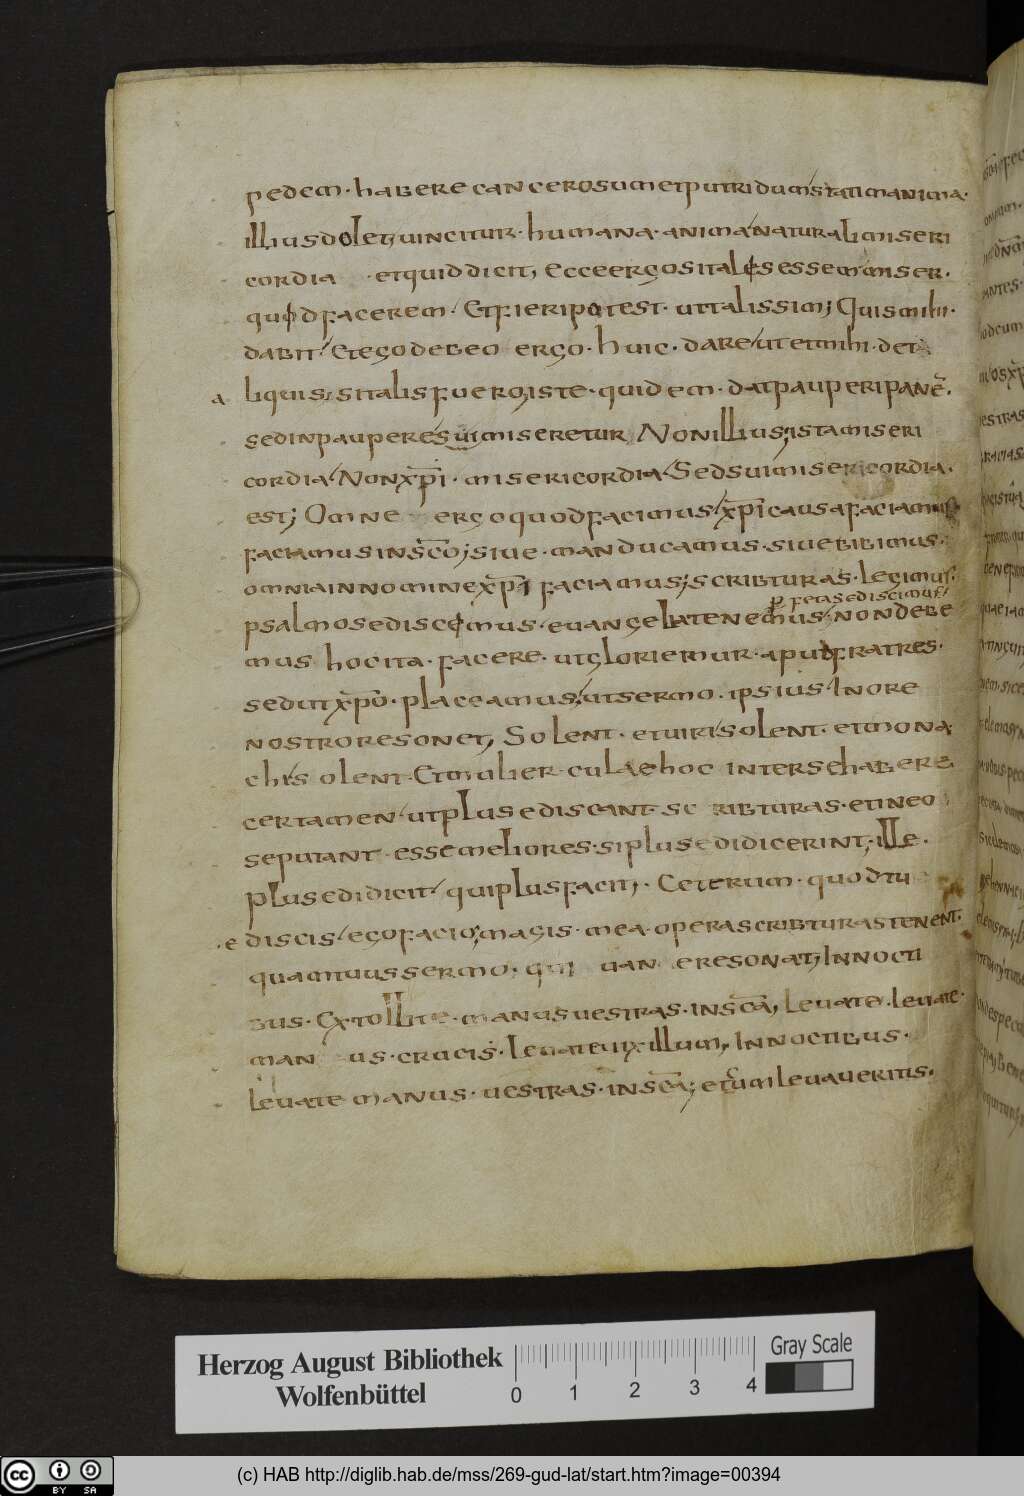 pedem · habere cancerosum et putridum statim anima ·
illius dolet, uincitur · humana · anima naturali miseri
cordia · et quid dicit, ecce ergo si talis essem miser ·
quod facerem · Et fieri potest · ut talissim; Quis mihi ·
dabit · Et ego debeo ergo · huic · dare ut et mihi · det
a liquis, si talis fuero, iste · quidem · dat pauperi pane ·
sed in paupere sui miseretur, Non illius, ista miseri
cordia Non xp̄i · misericordia Sed sui misericordia ·
est; Omne ergo quod facimus xp̄i causa faciamus
faciamus in sc̄o, siue · manducamus · siue bibimus ·
omnia in nomine xp̄i faciamus; scribturas · legimus ·
p fetas ediscimus
psalmos ediscimus · euangelia tenemus, non debe
mus hoc ita · facere · ut gloriemur · apud fratres ·
sed ut xp̄o · placeamus, ut sermo · ipsius In ore
nostro resonet, Solent · et uiri solent · et mona
chi solent · Et mulierculae hoc inter se habere
certamen ut plus ediscant · scribturas · et in eo
se putant · esse meliores · si plus edidicerint, ille ·
plus edidicit qui plus facit, · Ceterum · quod tu
· e discis ego facio, magis · mea · opera scribturas tenent ·
quam tuus sermo, qui uane resonat, In nocti
bus · Extollite · manus uestras · in sc̄a, Leuate · leuate ·
man us · crucis · Leuate uixillum, In noctibus ·
Leuate manus · uestras · in sc̄a; et cum leuaueritis ·
Herzog August Bibliothek
Wolfenbüttel
0 1 2 3 4
Gray Scale
cc BY SA
(c) HAB http://diglib.hab.de/mss/269-gud-lat/start.htm?image=00394